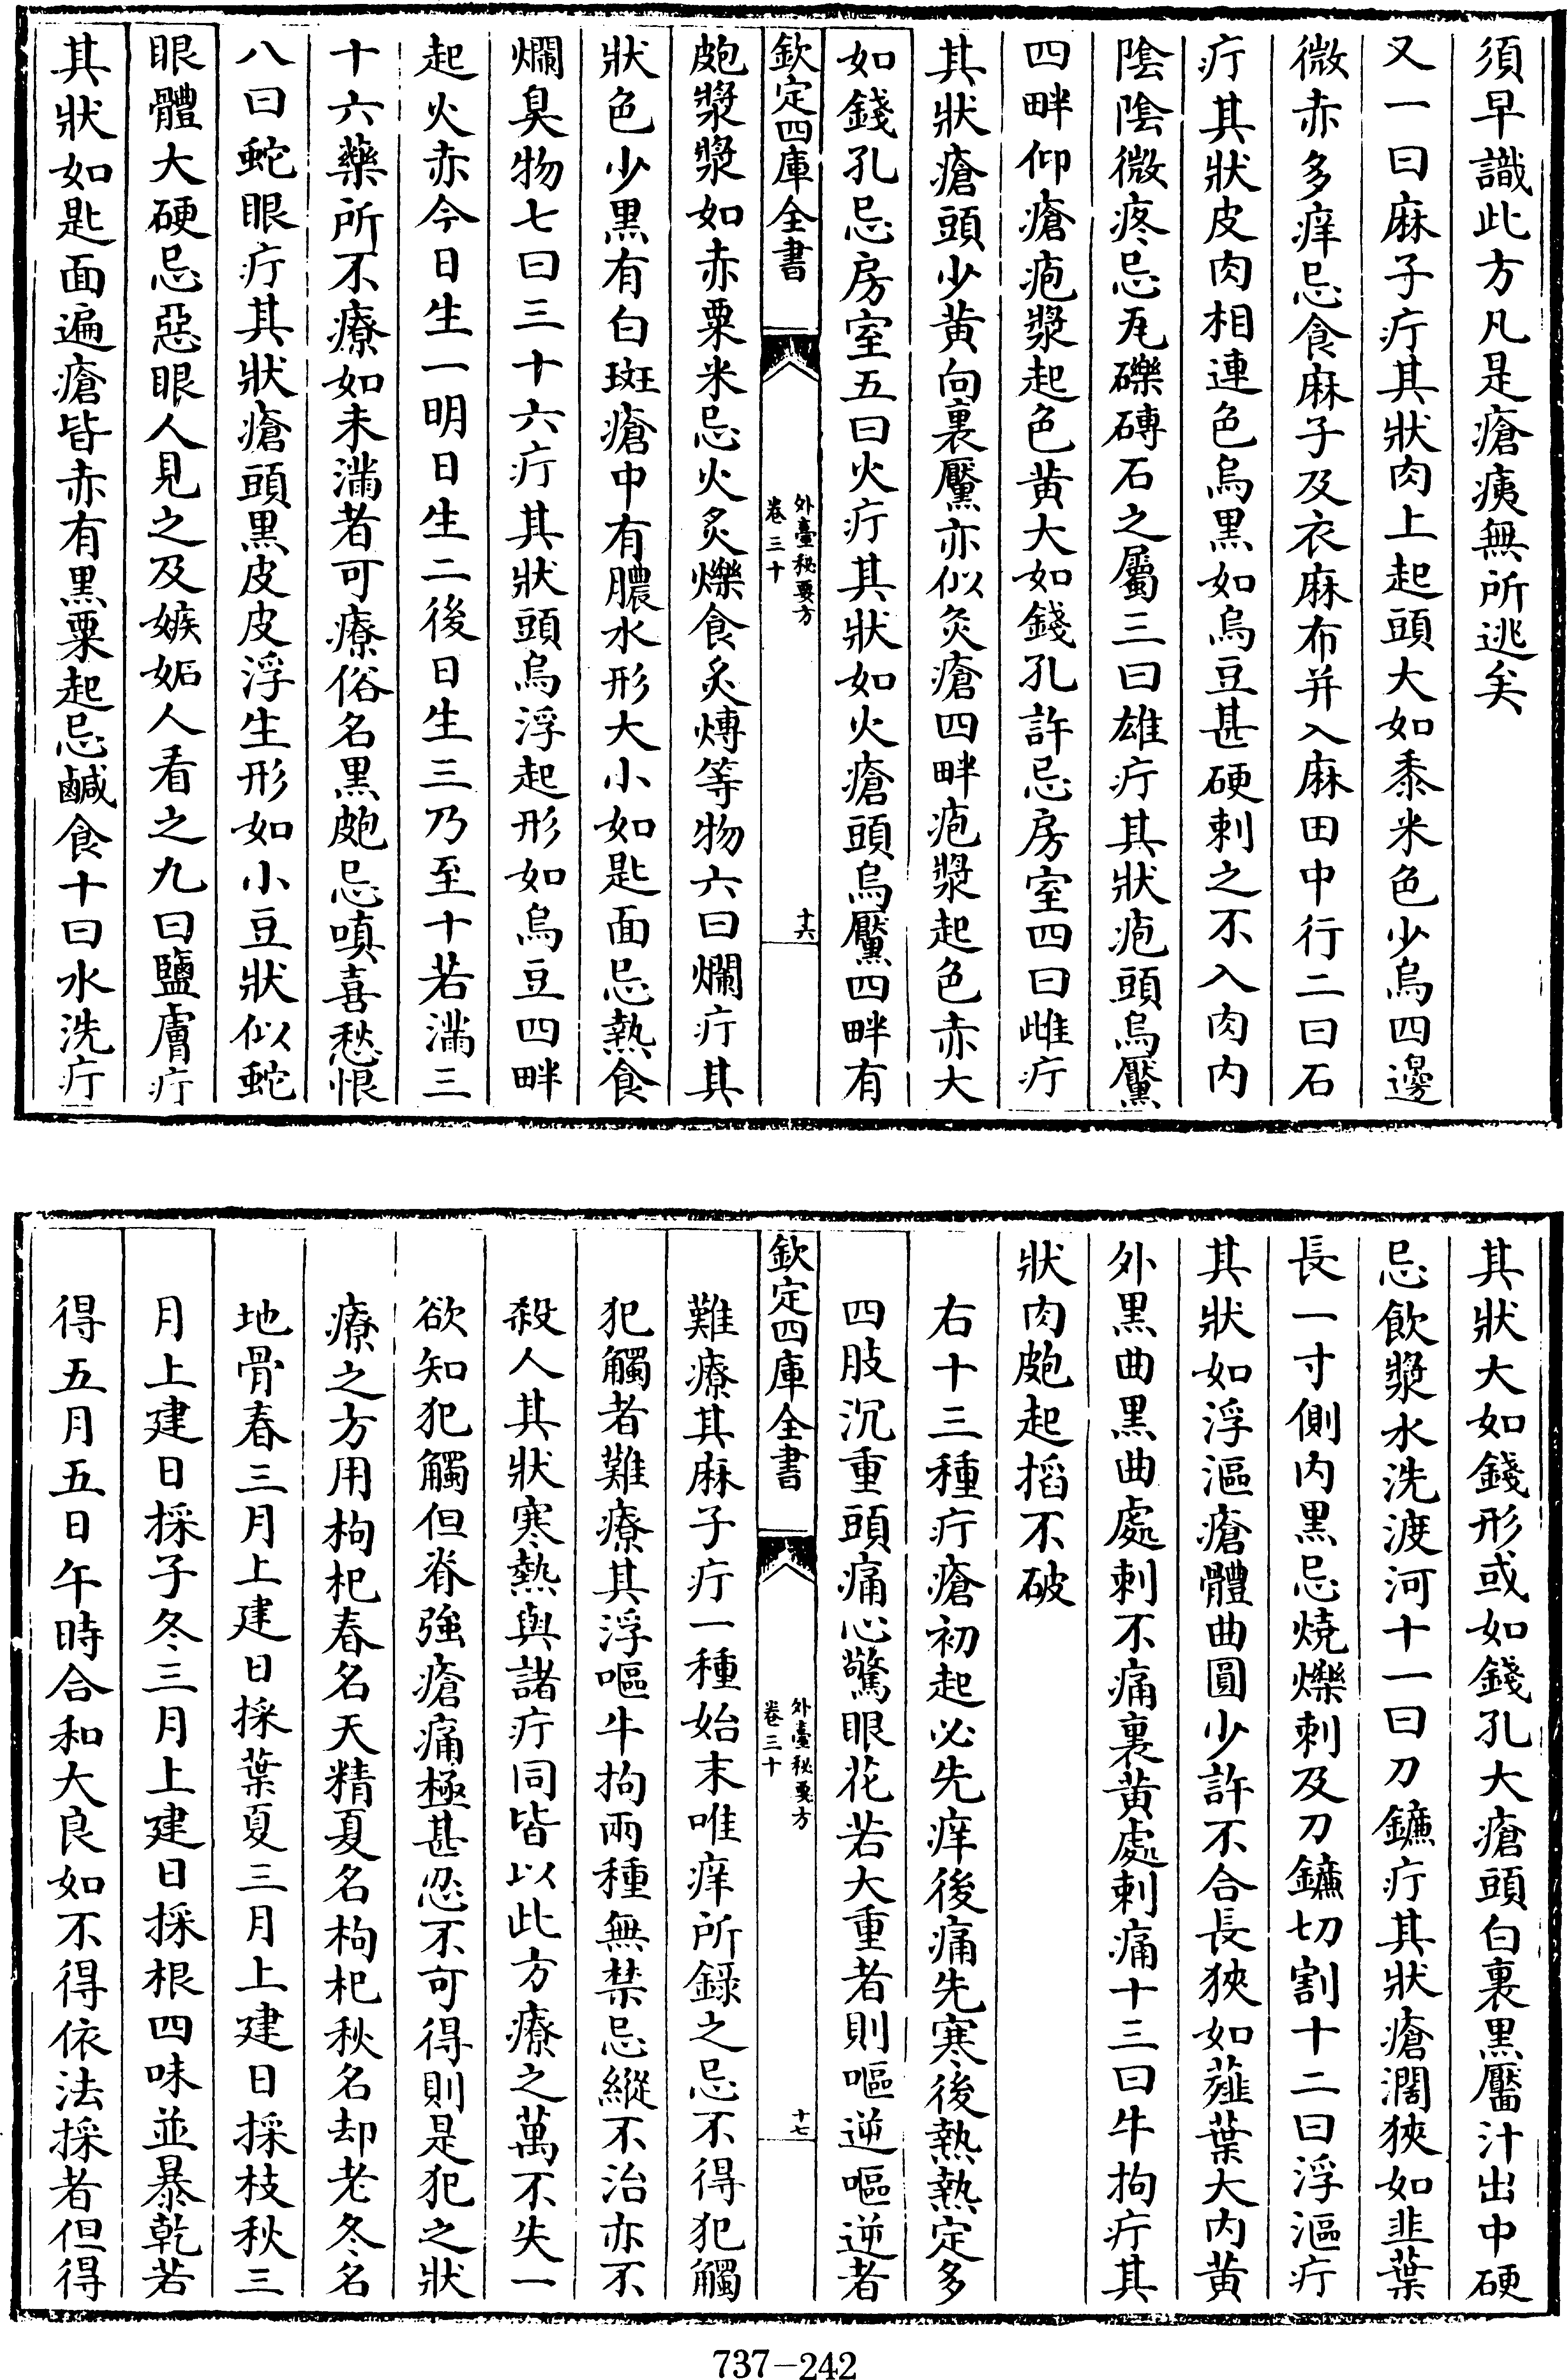 須早識此方凡是瘡痍無所逃矣
又一曰麻子疔其狀肉上起頭大如黍米色少烏四邊
微赤多痒忌食麻子及衣麻布并入麻田中行二曰石
疔其狀皮肉相連色烏黑如烏豆甚硬刺之不入肉内
陰陰微疼忌瓦礫磚石之屬三曰雄疔其狀疱頭烏黶
四畔仰瘡疱漿起色黄大如錢孔許忌房室四曰雌疔
其狀瘡頭少黄向裏黶亦似灸瘡四畔疱漿起色赤大
如錢孔忌房室五曰火疔其狀如火瘡頭烏黶四畔有
欽定四庫全書
外臺秘要方
卷三十
十六
皰漿漿如赤粟米忌火炙爍食炙煿等物六曰爛疔其
狀色少黑有白斑瘡中有膿水形大小如匙面忌熱食
爛臭物七曰三十六疔其狀頭烏浮起形如烏豆四畔
起火赤今日生一明日生二後日生三乃至十若滿三
十六藥所不療如未滿者可療俗名黑皰忌嗔喜愁恨
八曰蛇眼疔其狀瘡頭黑皮皮浮生形如小豆狀似蛇
眼體大硬忌惡眼人見之及嫉妬人看之九曰鹽膚疔
其狀如匙面遍瘡皆赤有黑粟起忌鹹食十曰水洗疔
其狀大如錢形或如錢孔大瘡頭白裏黑黶汁出中硬
忌飲漿水洗渡河十一曰刀鐮疔其狀瘡濶狹如韭葉
長一寸側内黑忌燒爍刺及刀鐮切割十二曰浮漚疔
其狀如浮漚瘡體曲圓少許不合長狹如薤葉大内黄
外黑曲黑曲處刺不痛裏黄處刺痛十三曰牛拘疔其
狀肉皰起搯不破
右十三種疔瘡初起必先痒後痛先寒後熱熱定多
四肢沉重頭痛心驚眼花若大重者則嘔逆嘔逆者
欽定四庫全書
外臺秘要方
卷三十
十七
難療其麻子疔一種始末唯痒所録之忌不得犯觸
犯觸者難療其浮嘔牛拘兩種無禁忌縱不治亦不
殺人其狀寒熱與諸疔同皆以此方療之萬不失一
欲知犯觸但脊強瘡痛極甚忍不可得則是犯之狀
療之方用枸杞春名天精夏名枸杞秋名却老冬名
地骨春三月上建日採葉夏三月上建日採枝秋三
月上建日採子冬三月上建日採根四味並暴乾若
得五月五日午時合和大良如不得依法採者但得
737—242